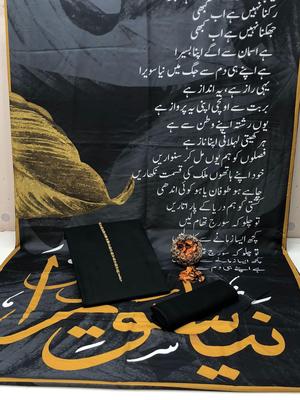 رکنا نہیں ہے اب کبھی
جھکنا نہیں ہے اب کبھی
ہے آسمان سے آگے اپنا بسیرا
ہے اپنے ہی دم سے جگ میں نیا سویرا
یہی راز ہے، یہ انداز ہے
پربت سے اونچی اپنی پرواز ہے
یوں رشتہ اپنے وطن سے ہے
ہر کھیتی لہلاتی اپنا ناز ہے
فصلوں کو ہم یوں مل کر سنواریں
خود اپنے ہاتھوں ملک کی قسمت نکھاریں
چاہے ہو طوفان یا ہو کوئی آندھی
کشتی کو ہم دریا کے پار اتاریں
تو چلو کہ سورج تھام لیں
کچھ ایسا زمانے سے
تو چلو کہ سورج
نیا سویرا